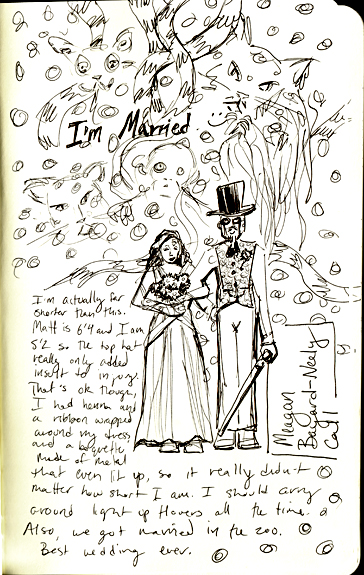 I'm Married
I'm actually far
shorter than this.
Matt is 6'4 and I am
5'2 so the top hat
really only added
insult to injury.
That's ok though,
I had henna and
a ribbon wrapped
around my dress
and a boquette
made of metal
that even lit up, so it really didn't
matter how short I am. I should carry
around light up flowers all the time.
Also, we got married in the zoo.
Best wedding ever.
Meagan